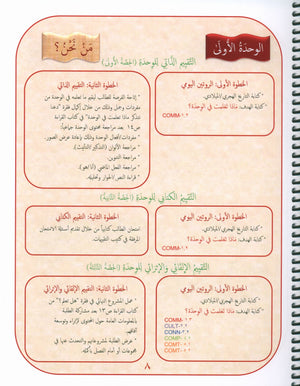 الوحدة الأولى
من نحن؟
التقييم الذاتي للوحدة (الحصة الأولى)
الخطوة الأولى: الروتين اليومي
* كتابة التاريخ الهجري/الميلادي.
* كتابة الهدف: ماذا تعلمت في الوحدة؟
COMM-١.٢
الخطوة الثانية: التقييم الذاتي
* إتاحة الفرصة للطالب ليقيم ما تعلمه في الوحدة من
مفردات وجمل وذلك من خلال إكمال فقرة "دعنا
نتذكر ماذا تعلمت في الوحدة" في كتاب القراءة
ص١٤ بعد مراجعة محتوى الوحدة جماعياً:
* مفردات/أفعال الوحدة وتوظيفها في جمل.
* مراجعة الألوان (التذكير/التأنيث).
* مراجعة التنوين.
* مراجعة الفعل الماضي (أنا/هو)
* قراءة النص/الحوار وتحليله.
التقييم الكتابي للوحدة (الحصة الثانية)
الخطوة الأولى: الروتين اليومي
* كتابة التاريخ الهجري/الميلادي.
* كتابة الهدف: ماذا تعلمت في الوحدة؟
COMM-١.٢
الخطوة الثانية: التقييم الكتابي
امتحان الطالب كتابياً من خلال تقديم أسئلة الامتحان
المرفقة في كتاب التدريبات.
التقييم الإلقائي والإثرائي للوحدة (الحصة الثالثة)
الخطوة الأولى: الروتين اليومي
* كتابة التاريخ الهجري/الميلادي.
* كتابة الهدف: ماذا تعلمت في الوحدة؟
الخطوة الثانية: التقييم الإلقائي والإثرائي
* عمل المشروع البنائي في فقرة "هل تعلم؟" من
كتاب القراءة ص١٣ بعد مشاركة الطلبة
بالمعلومات العامة حول المحتوى لإثراء وتوسعة
أفقهم.
* يعرض الطالب مشروعه ويتحدث عنه
مجموعات أو أمام الفصل بأكمله.
٨